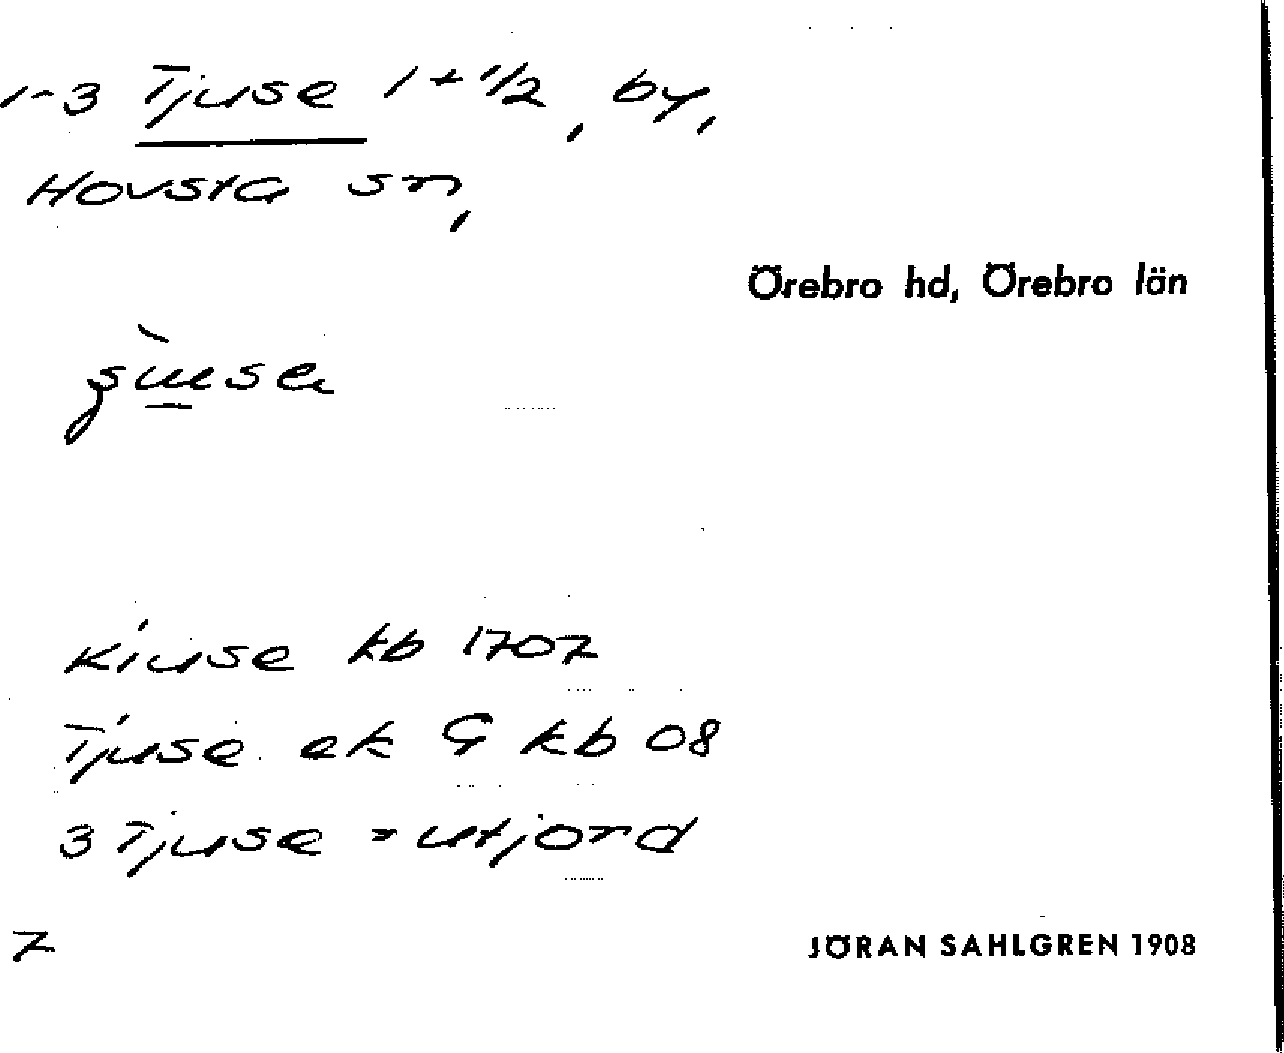 1-3 Tjuse 1 + 1/2, by,
Hovsta sn,
Örebro hd, Örebro län
Kiuse kb 1707
Tjuse ek G kb 08
3 Tjuse = utjord
7
JÖRAN SAHLGREN 1908